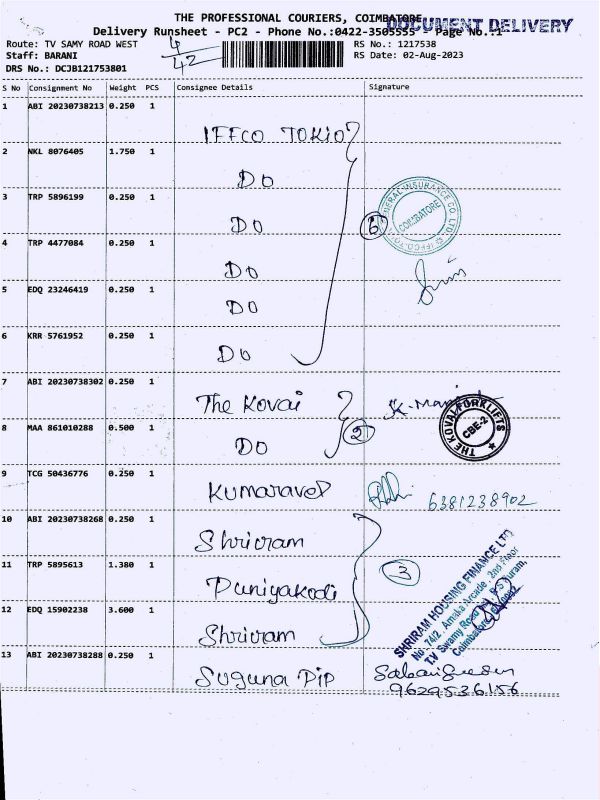 THE PROFESSIONAL COURIERS, COIMBATORE
DOCUMENT DELIVERY
Delivery Runsheet - PC2 - Phone No.:0422-3505555 - Page No.:1
Route: TV SAMY ROAD WEST
4/42
RS No.: 1217538
Staff: BARANI
RS Date: 02-Aug-2023
DRS No.: DCJB121753801
S No Consignment No Weight PCS Consignee Details Signature
1 ABI 20230738213 0.250 1
IFFCO TOKIO
2 NKL 8076405 1.750 1
DO
3 TRP 5896199 0.250 1
DO
6
GENERAL INSURANCE CO. LTD.
COIMBATORE
4 TRP 4477084 0.250 1
DO
5 EDQ 23246419 0.250 1
DO
6 KRR 5761952 0.250 1
DO
7 ABI 20230738302 0.250 1
The Kovai
THE KOVAI FORKLIFTS
CBE-2
8 MAA 861010288 0.500 1
DO
2
9 TCG 50436776 0.250 1
Kumaravel
6381238902
10 ABI 20230738268 0.250 1
Shriram
11 TRP 5895613 1.380 1
Puniyakodi
3
SHRIRAM HOUSING FINANCE LTD
No. 74/2, Amska Arcade, 2nd Floor
T.V Swamy Road
Coimbatore
12 EDQ 15902238 3.600 1
Shriram
13 ABI 20230738288 0.250 1
Suguna Pip
9629536156